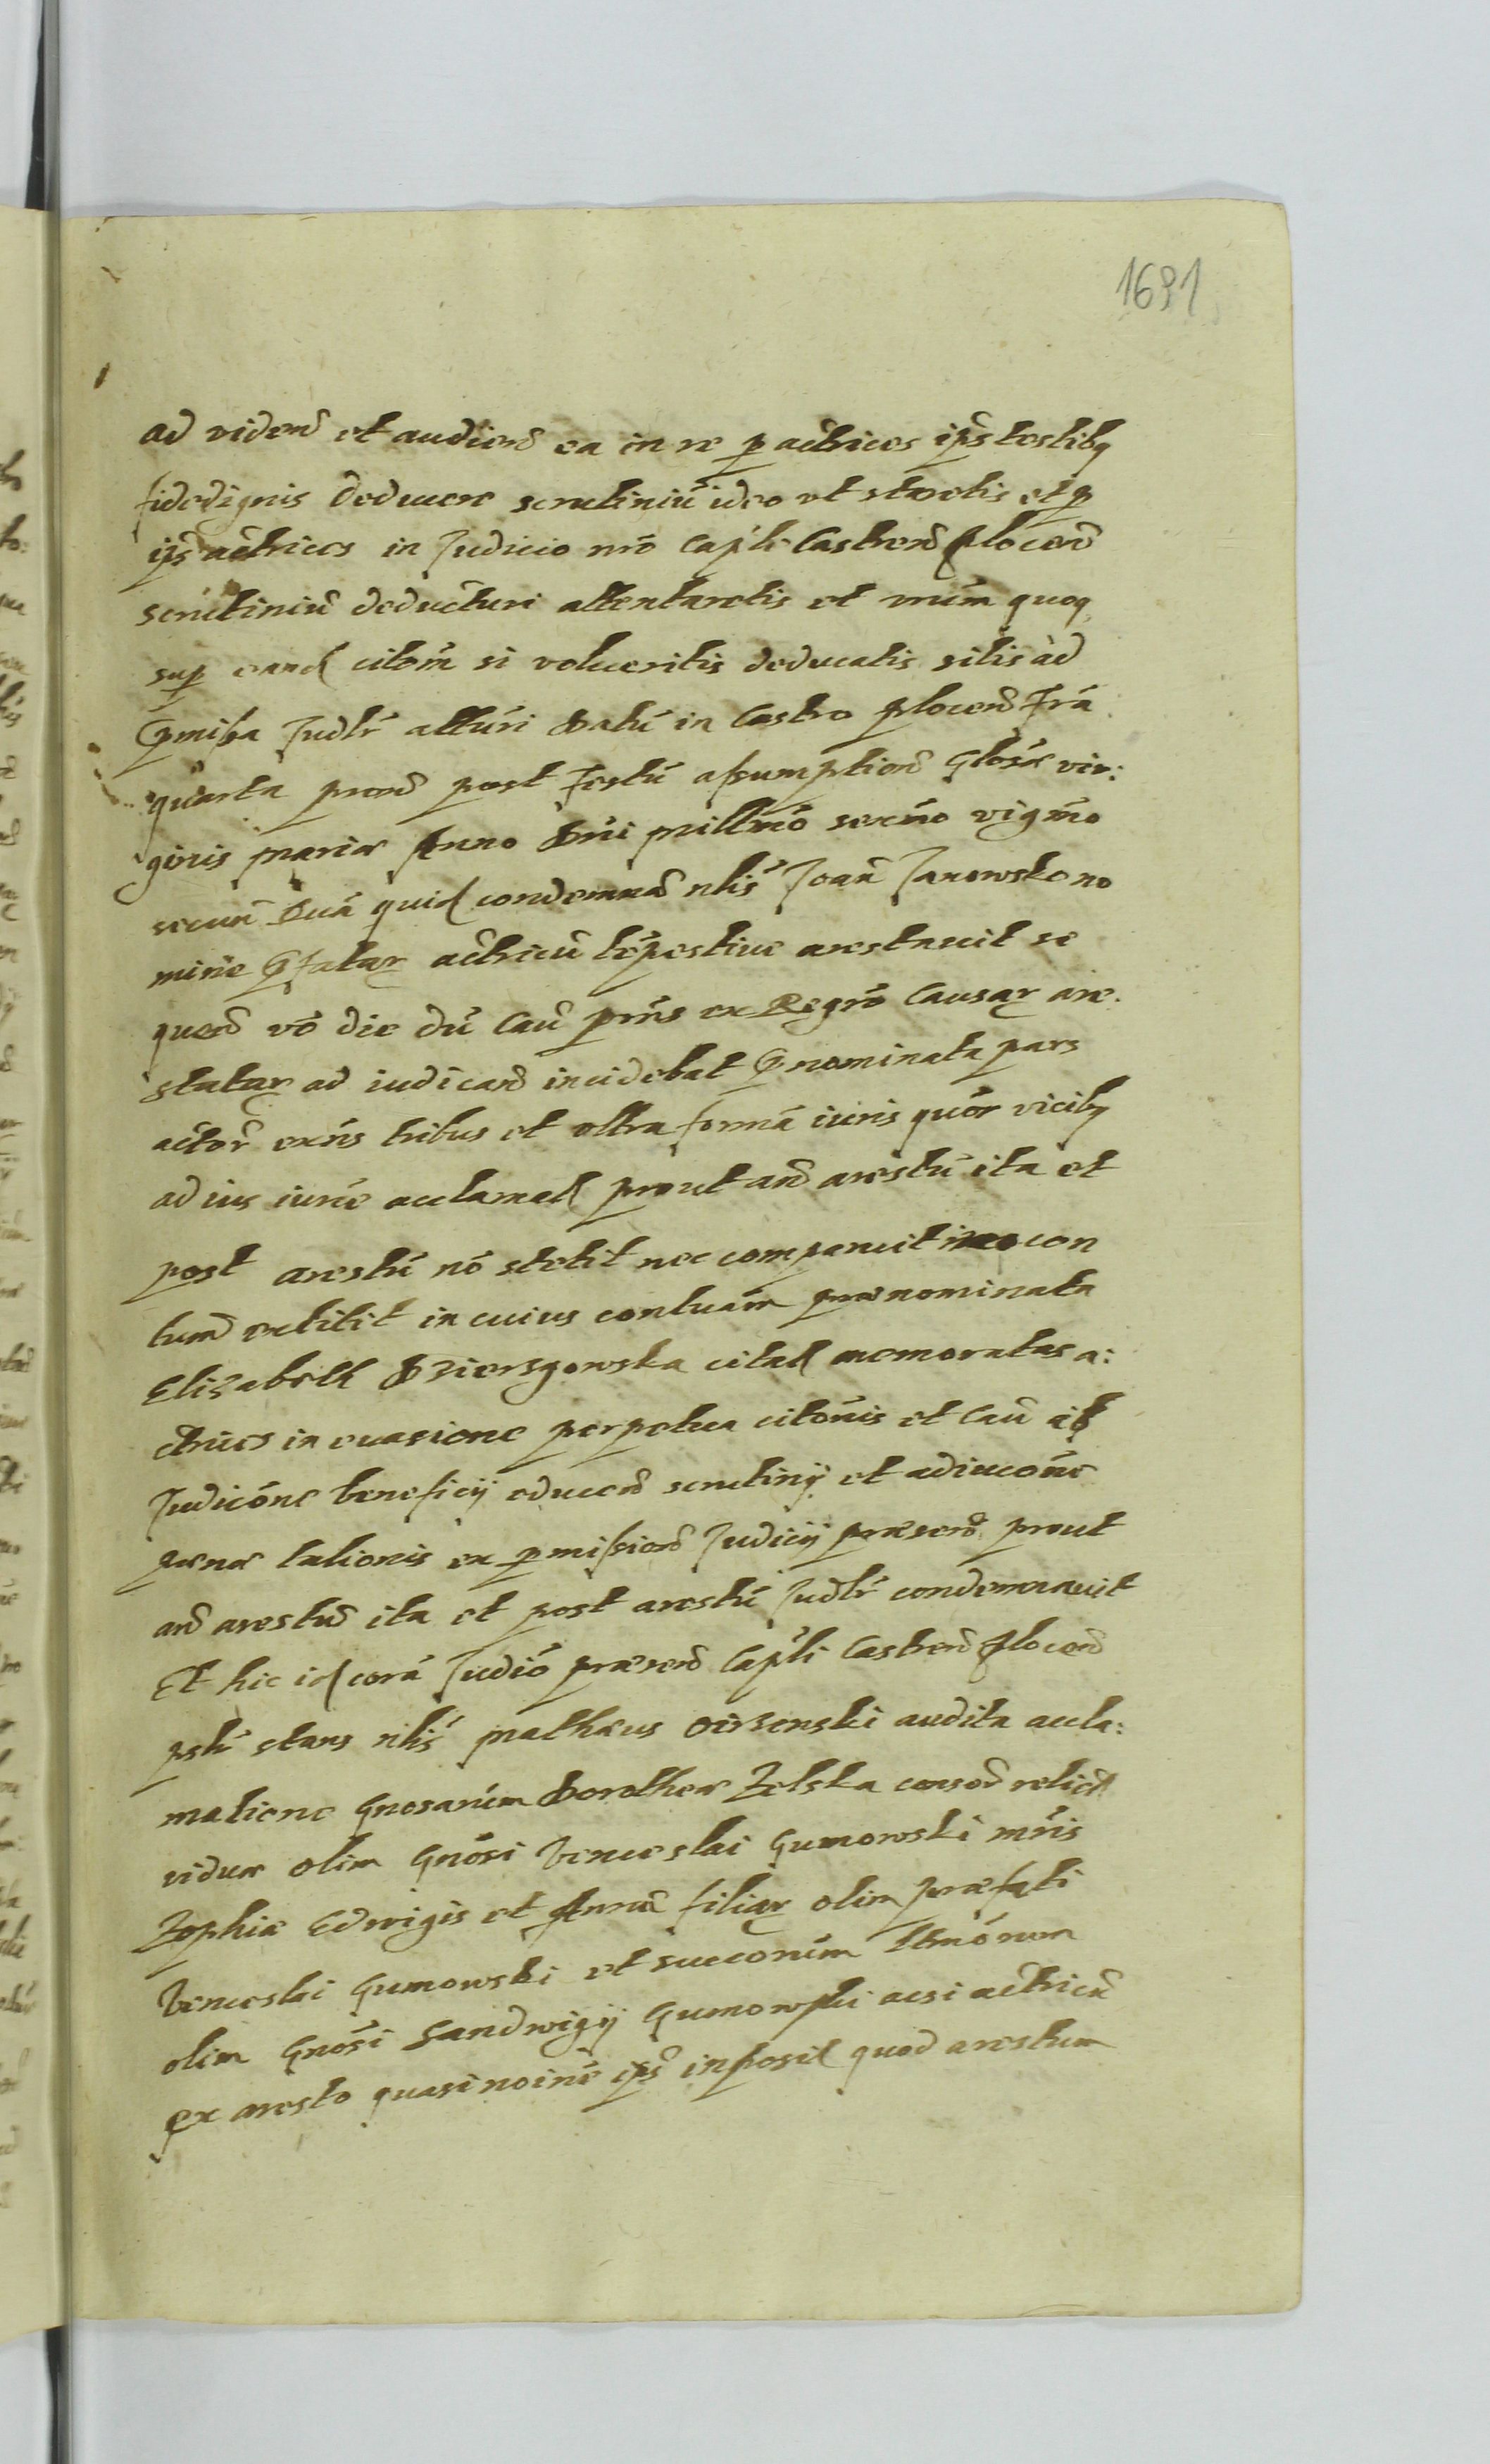 1691
ad videnđ et audienđ ea in re p actrices ips̃ testibq
fidedignis deducere scrutiniũ ideo ut stãretis et p
ips̃ actrices in Judicio nr̃o Cap̃li Castrenđ Plocenđ
scrutiniũ deducturi attentaretis et vrũm quoq
sup eand citõm si volueritis deducatis sitis ad
p̃missa Judłr atturi Datũ in Castro Plocenđ Fr̃a
quarta proxđ post Festũ assumptionđ Glosæ vir:
ginis Mariæ Anno Dñi Millm̃o sexm̃o vigm̃o
secunđ Quã quid condemnađ nlis̃ Joañ Janowski no
mine p̃fatar actricũ tẽpestive arestavit se
quenđ võ die dũ Caũ prñs ex Regrõ Causar are:
statar ad iudicanđ incidebat p̃nominata pars
actor̃ exñs tribus et ultra formã iuris quõr vicibq
ad ius iurẽ acclamađ prout anđ arestũ ita et
post arestũ nõ stetit nec comparuit con
tumđ extitit in cuius contuãm prænominata
Elisabeth Dzierzgowska citađ memoratas a:
ctrices in evasione perpetua citõnis et Caũ
Judicõne beneficij educenđ scrutinij et adiucõne
pænæ talionis ex p̃missionđ Judicij præsenđ prout
anđ arestuđ ita et post arestũ Judłr condemnavit
Et hic id corã Judiõ præsenđ Cap̃li Castrenđ Plocenđ
pslr̃ stans nlis̃ Mathæus Oirzenski audita accla:
matione Gnosarũm Dorotheæ Zelska consođ relicđ
viduæ olim Gnõsi Venceslai Gumowski mr̃is
Zophiæ Edwigis et Annæ filiar olim præfati
Venceslai Gumowski et succorũm ltm̃õrum
olim Gnõsi Sandwigij Gumowski acsi actricũ
ex aresto quasi noinẽ ips̃ inposiđ quod arestum